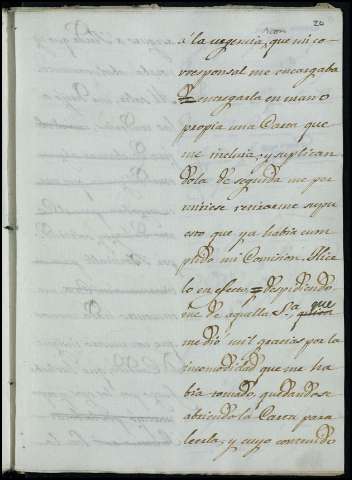 20
á la urgencia con que mi co-
rresponsal me encargaba
entregarla en mano
propia una Carta que
me incluia; y suplican
dola de seguida me per
mitiese retirarme supu
esto que ya habia cum
plido mi Comision. Hice
lo en efecto = despidiendo
me de aquella S.ª que
me dió mil gracias por la
incomodidad que me ha
bia tomado, quedandose
abriendo la Carta para
leerla, y cuyo contenido